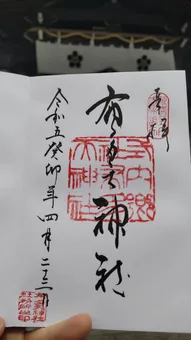 奉拝
布多天神社
令和五癸卯年四月二三日